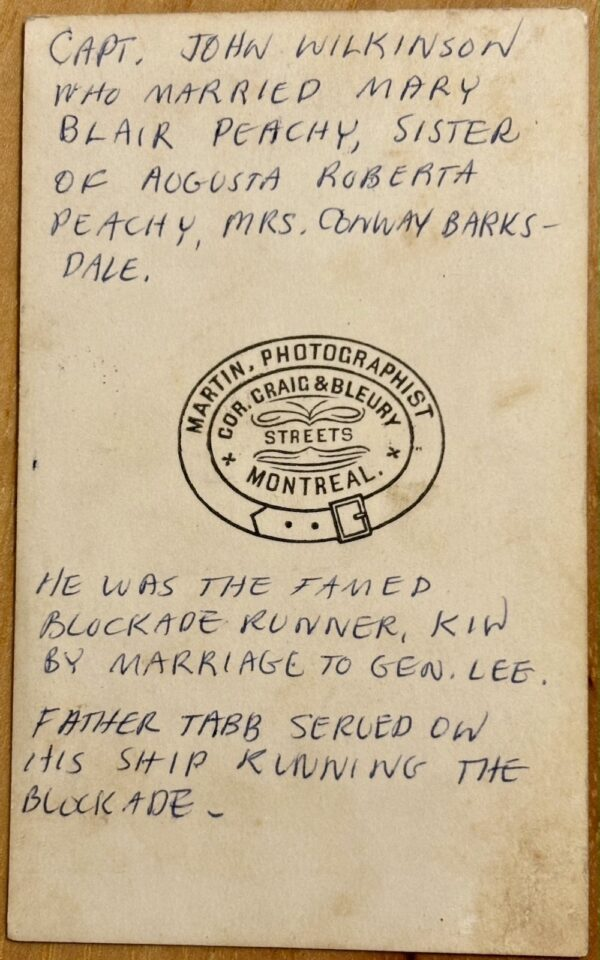 CAPT. JOHN WILKINSON
WHO MARRIED MARY
BLAIR PEACHY, SISTER
OF AUGUSTA ROBERTA
PEACHY, MRS. CONWAY BARKS-
DALE.
MARTIN, PHOTOGRAPHIST
COR. CRAIG & BLEURY
STREETS
MONTREAL.
HE WAS THE FAMED
BLOCKADE RUNNER, KIN
BY MARRIAGE TO GEN. LEE.
FATHER TABB SERVED ON
HIS SHIP RUNNING THE
BLOCKADE -